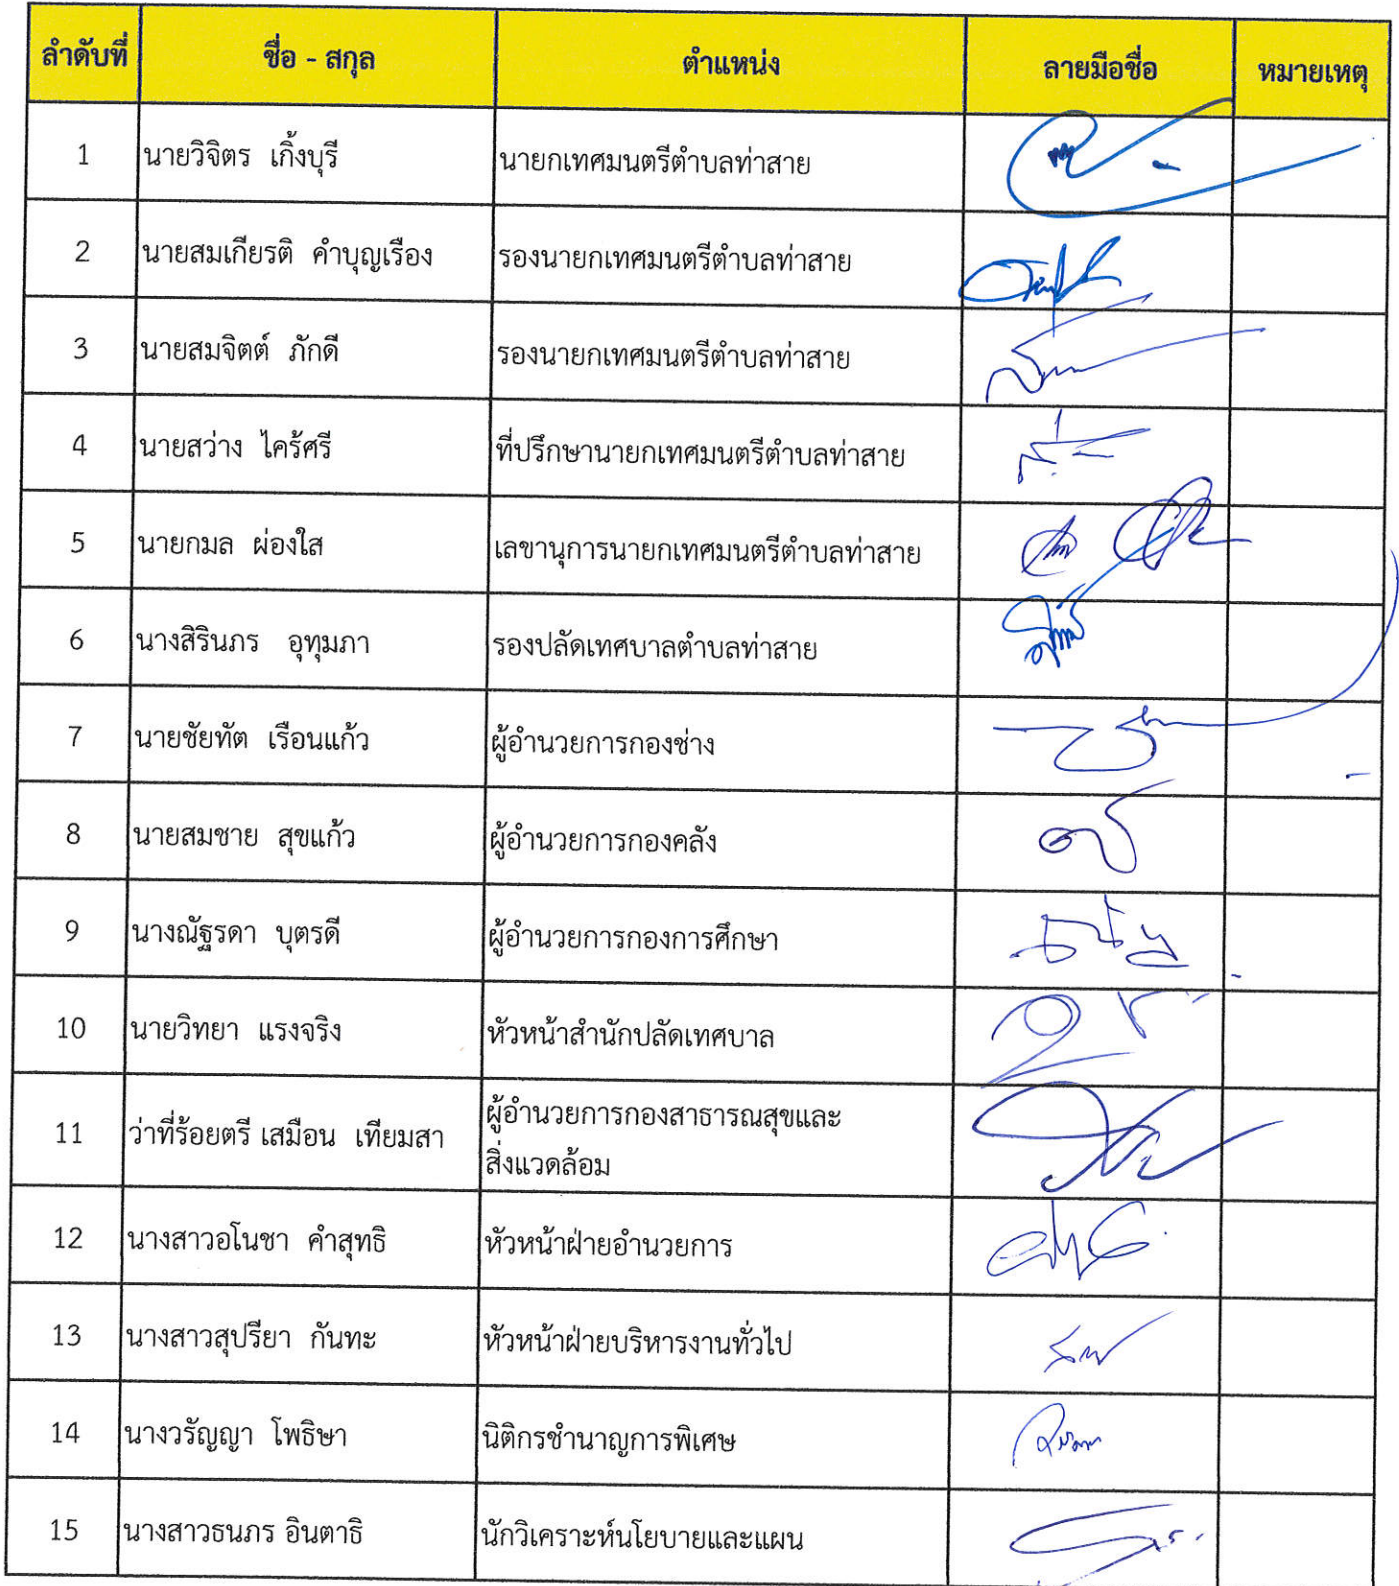 ลำดับที่ ชื่อ - สกุล ตำแหน่ง ลายมือชื่อ หมายเหตุ
1 นายวิจิตร เกิ้งบุรี นายกเทศมนตรีตำบลท่าสาย
2 นายสมเกียรติ คำบุญเรือง รองนายกเทศมนตรีตำบลท่าสาย
3 นายสมจิตต์ ภักดี รองนายกเทศมนตรีตำบลท่าสาย
4 นายสว่าง ไคร้ศรี ที่ปรึกษานายกเทศมนตรีตำบลท่าสาย
5 นายกมล ผ่องใส เลขานุการนายกเทศมนตรีตำบลท่าสาย
6 นางสิรินภร อุทุมภา รองปลัดเทศบาลตำบลท่าสาย
7 นายชัยทัต เรือนแก้ว ผู้อำนวยการกองช่าง
8 นายสมชาย สุขแก้ว ผู้อำนวยการกองคลัง
9 นางณัฐรดา บุตรดี ผู้อำนวยการกองการศึกษา
10 นายวิทยา แรงจริง หัวหน้าสำนักปลัดเทศบาล
11 ว่าที่ร้อยตรี เสมือน เทียมสา ผู้อำนวยการกองสาธารณสุขและ
สิ่งแวดล้อม
12 นางสาวอโนชา คำสุทธิ หัวหน้าฝ่ายอำนวยการ
13 นางสาวสุปรียา กันทะ หัวหน้าฝ่ายบริหารงานทั่วไป
14 นางวรัญญา โพธิษา นิติกรชำนาญการพิเศษ
15 นางสาวธนภร อินตาธิ นักวิเคราะห์นโยบายและแผน